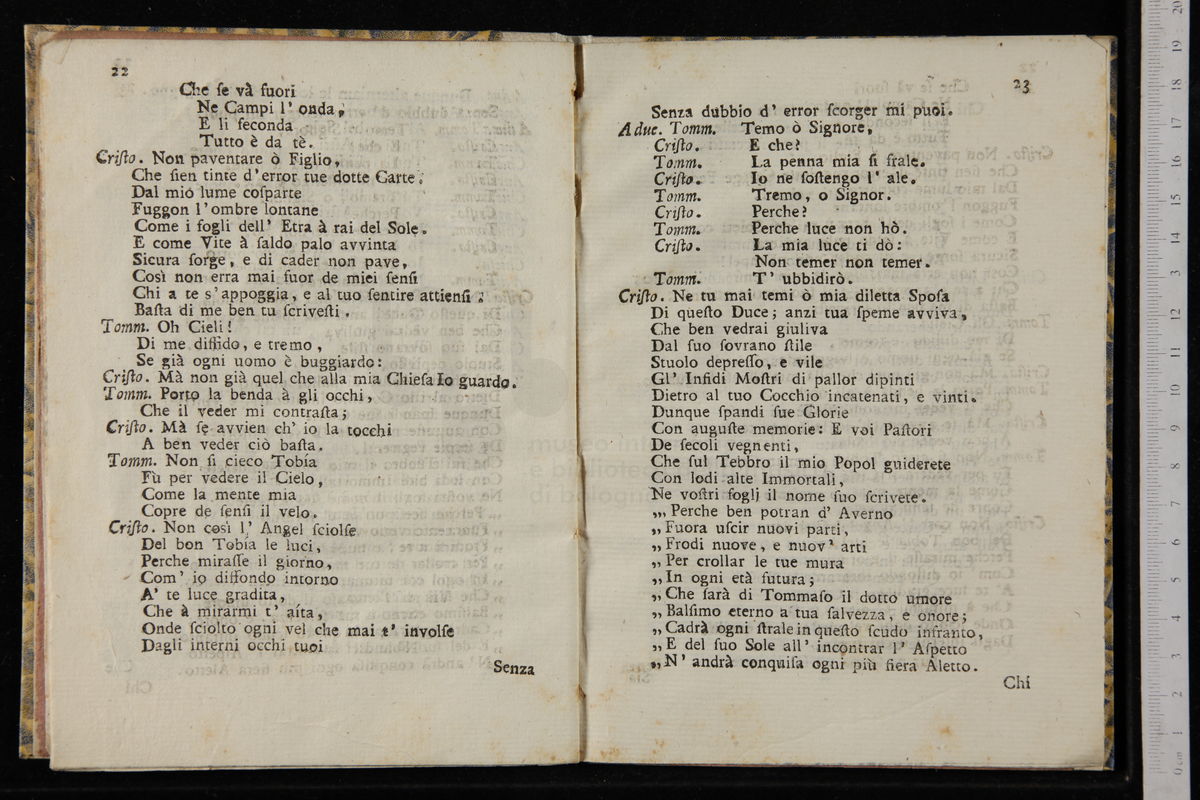 22
Che ſe và fuori
Ne Campi l' onda,
E li feconda
Tutto è da tè.
Criſto. Non paventare ò Figlio,
Che ſien tinte d'error tue dotte Carte:
Dal mio lume coſparte
Fuggon l'ombre lontane
Come i fogli dell' Etra à rai del Sole.
E come Vite à ſaldo palo avvinta
Sicura ſorge, e di cader non pave,
Così non erra mai fuor de miei ſenſi
Chi a te s'appoggia, e al tuo ſentire attienſi:
Baſta di me ben tu ſcriveſti.
Tomm. Oh Cieli!
Di me diffido, e tremo,
Se già ogni uomo è buggiardo:
Criſto. Mà non già quel che alla mia Chieſa Io guardo.
Tomm. Porto la benda à gli occhi,
Che il veder mi contraſta;
Criſto. Mà ſe avvien ch' io la tocchi
A ben veder ciò baſta.
Tomm. Non ſi cieco Tobía
Fù per vedere il Cielo,
Come la mente mia
Copre de ſenſi il velo.
Criſto. Non così l' Angel ſciolſe
Del bon Tobía le luci,
Perche miraſſe il giorno,
Com' io diffondo intorno
A' te luce gradita,
Che à mirarmi t' aíta,
Onde ſciolto ogni vel che mai t' involſe
Dagli interni occhi tuoi
Senza
23
Senza dubbio d' error ſcorger mi puoi.
A due. Tomm. Temo ò Signore,
Criſto. E che?
Tomm. La penna mia ſi frale.
Criſto. Io ne ſoſtengo l' ale.
Tomm. Tremo, o Signor.
Criſto. Perche?
Tomm. Perche luce non hò.
Criſto. La mia luce ti dò:
Non temer non temer.
Tomm. T' ubbidirò.
Criſto. Ne tu mai temi ò mia diletta Spoſa
Di queſto Duce; anzi tua ſpeme avviva,
Che ben vedrai giuliva
Dal ſuo ſovrano ſtile
Stuolo depreſſo, e vile
Gl' Infidi Moſtri di pallor dipinti
Dietro al tuo Cocchio incatenati, e vinti.
Dunque ſpandi ſue Glorie
Con auguſte memorie: E voi Paſtori
De ſecoli vegnenti,
Che ſul Tebbro il mio Popol guiderete
Con lodi alte Immortali,
Ne voſtri fogli il nome ſuo ſcrivete.
„, Perche ben potran d' Averno
„ Fuora uſcir nuovi parti,
„ Frodi nuove, e nuov' arti
„ Per crollar le tue mura
„ In ogni età futura;
„ Che ſarà di Tommaſo il dotto umore
„ Balſimo eterno a tua ſalvezza, e onore;
„ Cadrà ogni ſtrale in queſto ſcudo infranto,
„ E del ſuo Sole all' incontrar l' Aſpetto
„ N' andrà conquiſa ogni più fiera Aletto.
Chi